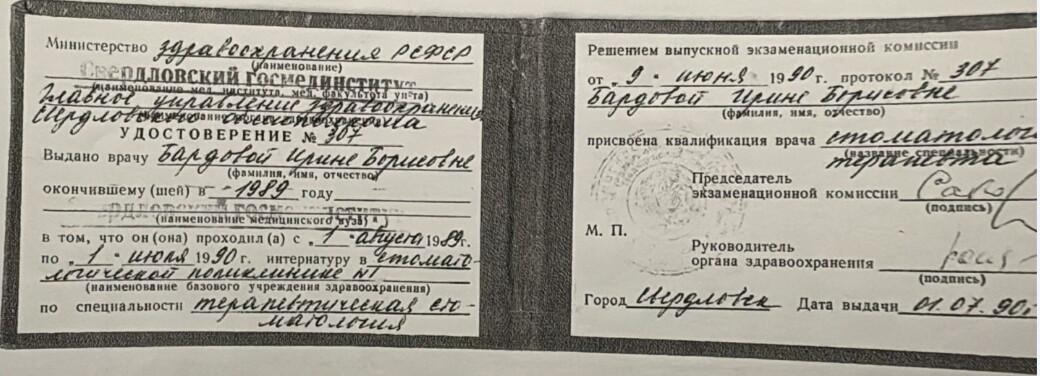 Министерство здравоохранения РСФСР
(наименование)
СВЕРДЛОВСКИЙ ГОСМЕДИНСТИТУТ
(наименование мед. института, мед. факультета ун-та)
Главное управление здравоохранения
Свердловского облисполкома
УДОСТОВЕРЕНИЕ № 307
Выдано врачу Бардовой Ирине Борисовне
(фамилия, имя, отчество)
окончившему (шей) в 1989 году
СВЕРДЛОВСКИЙ ГОСМЕДИНСТИТУТ
(наименование медицинского вуза)
в том, что он (она) проходил (а) с „1" августа 1989 г.
по „1" июля 1990 г. интернатуру в стомато-
логической поликлинике №1
(наименование базового учреждения здравоохранения)
по специальности терапевтическая сто-
матология
Решением выпускной экзаменационной комиссии
от „9" июня 1990 г. протокол № 307
Бардовой Ирине Борисовне
(фамилия, имя, отчество)
присвоена квалификация врача стоматолога
терапевта
(название специальности)
Председатель
экзаменационной комиссии
(подпись)
М. П.
Руководитель
органа здравоохранения
(подпись)
Город Свердловск Дата выдачи 01.07.90г